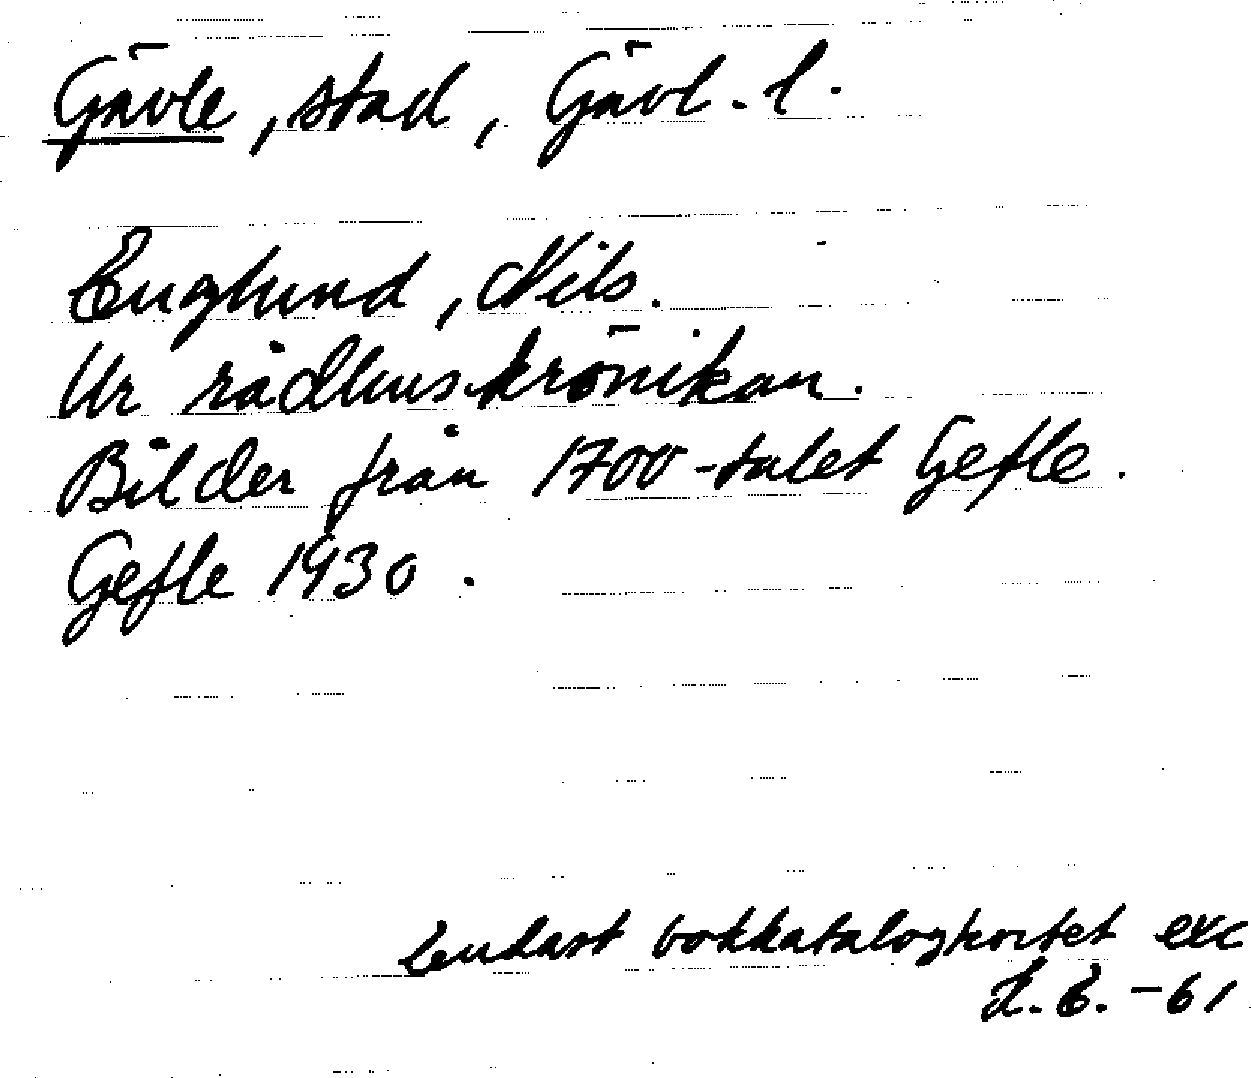 Gävle, stad, Gävl. l.
Englund, Nils.
Ur rådhuskrönikan.
Bilder från 1700-talet Gefle.
Gefle 1930.
Endast bokkatalogkortet exc
E. -61